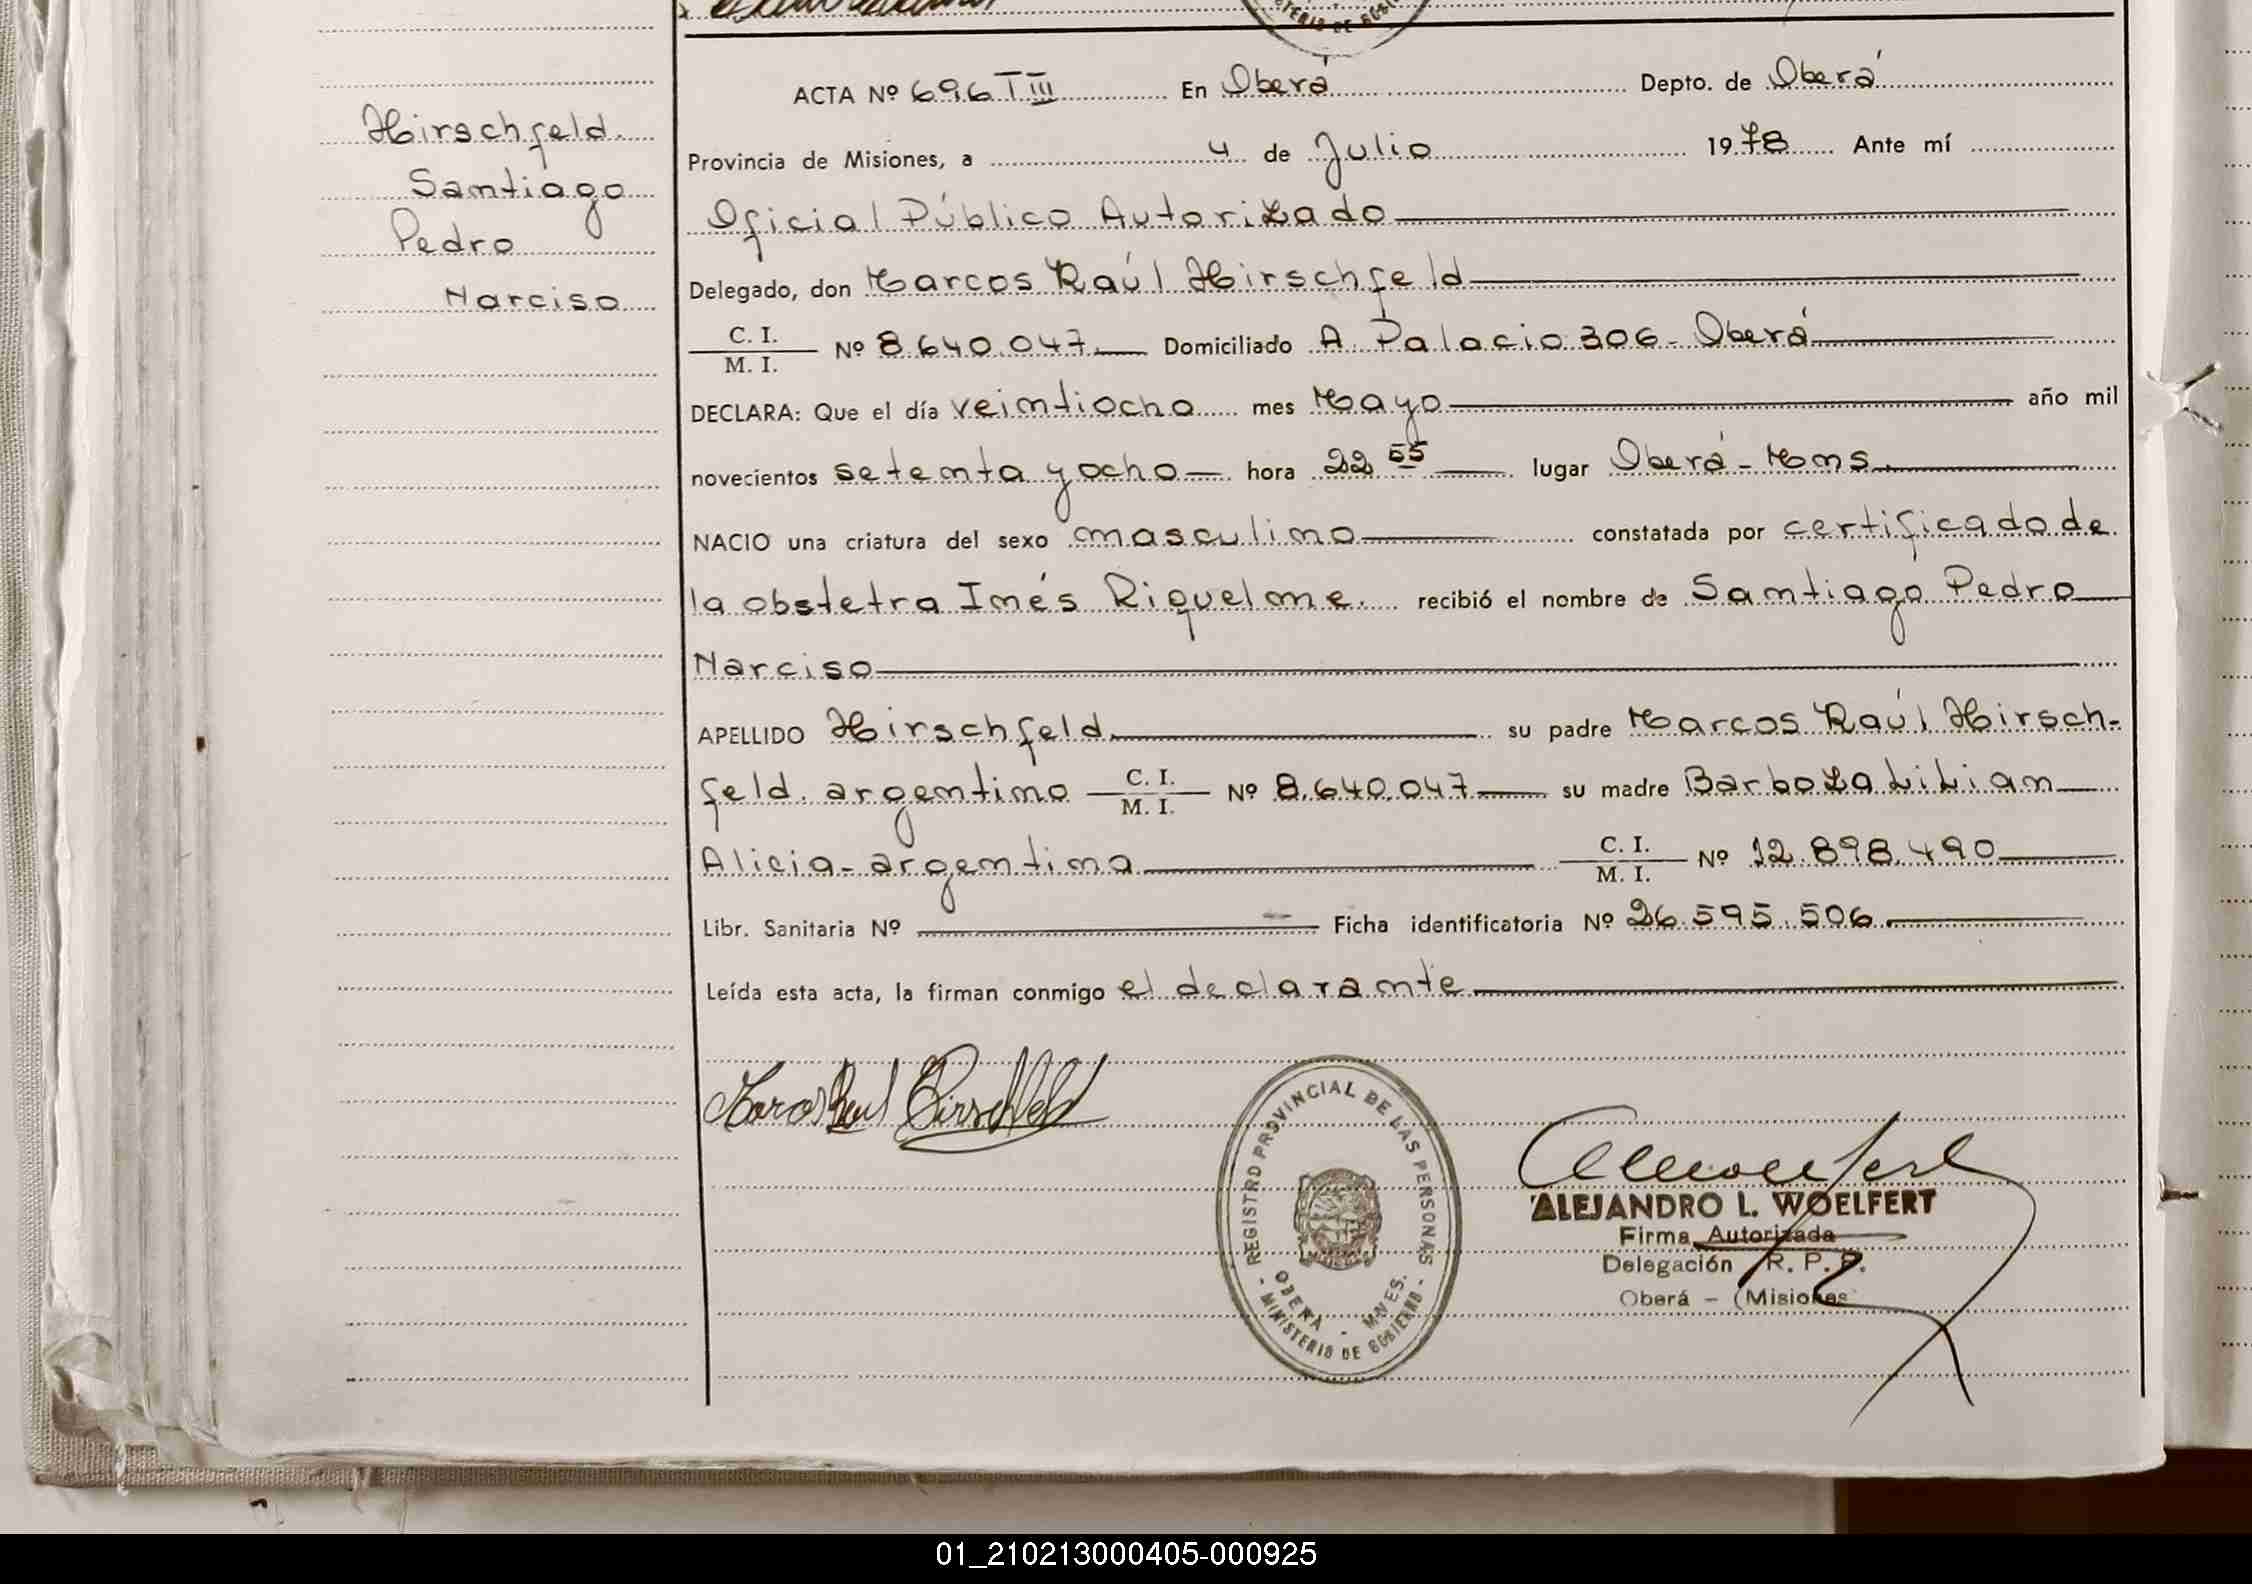 ACTA Nº 696 T III En Oberá Depto. de Oberá
Hirschfeld
Santiago
Pedro
Narciso
Provincia de Misiones, a 4 de Julio 1978 Ante mí
Oficial Público Autorizado
Delegado, don Marcos Raúl Hirschfeld
C. I.
M. I. Nº 8.640.047 Domiciliado A. Palacio 306 - Oberá
DECLARA: Que el día veintiocho mes Mayo año mil
novecientos setenta y ocho hora 22 55 lugar Oberá - Mns.
NACIO una criatura del sexo masculino constatada por certificado de
la obstetra Inés Riquelme. recibió el nombre de Santiago Pedro
Narciso
APELLIDO Hirschfeld su padre Marcos Raúl Hirsch-
feld. argentino C. I. M. I. Nº 8.640.047 su madre Barboza Lilian
Alicia - argentina C. I. M. I. Nº 12.898.490
Libr. Sanitaria Nº Ficha identificatoria Nº 26.595.506.
Leída esta acta, la firman conmigo el declarante
Marcos Raul Hirschfeld
REGISTRO PROVINCIAL DE LAS PERSONAS
OBERA - MNES.
- MINISTERIO DE GOBIERNO -
ALEJANDRO L. WOELFERT
Firma Autorizada
Delegación R. P. P.
Oberá - (Misiones
01_210213000405-000925